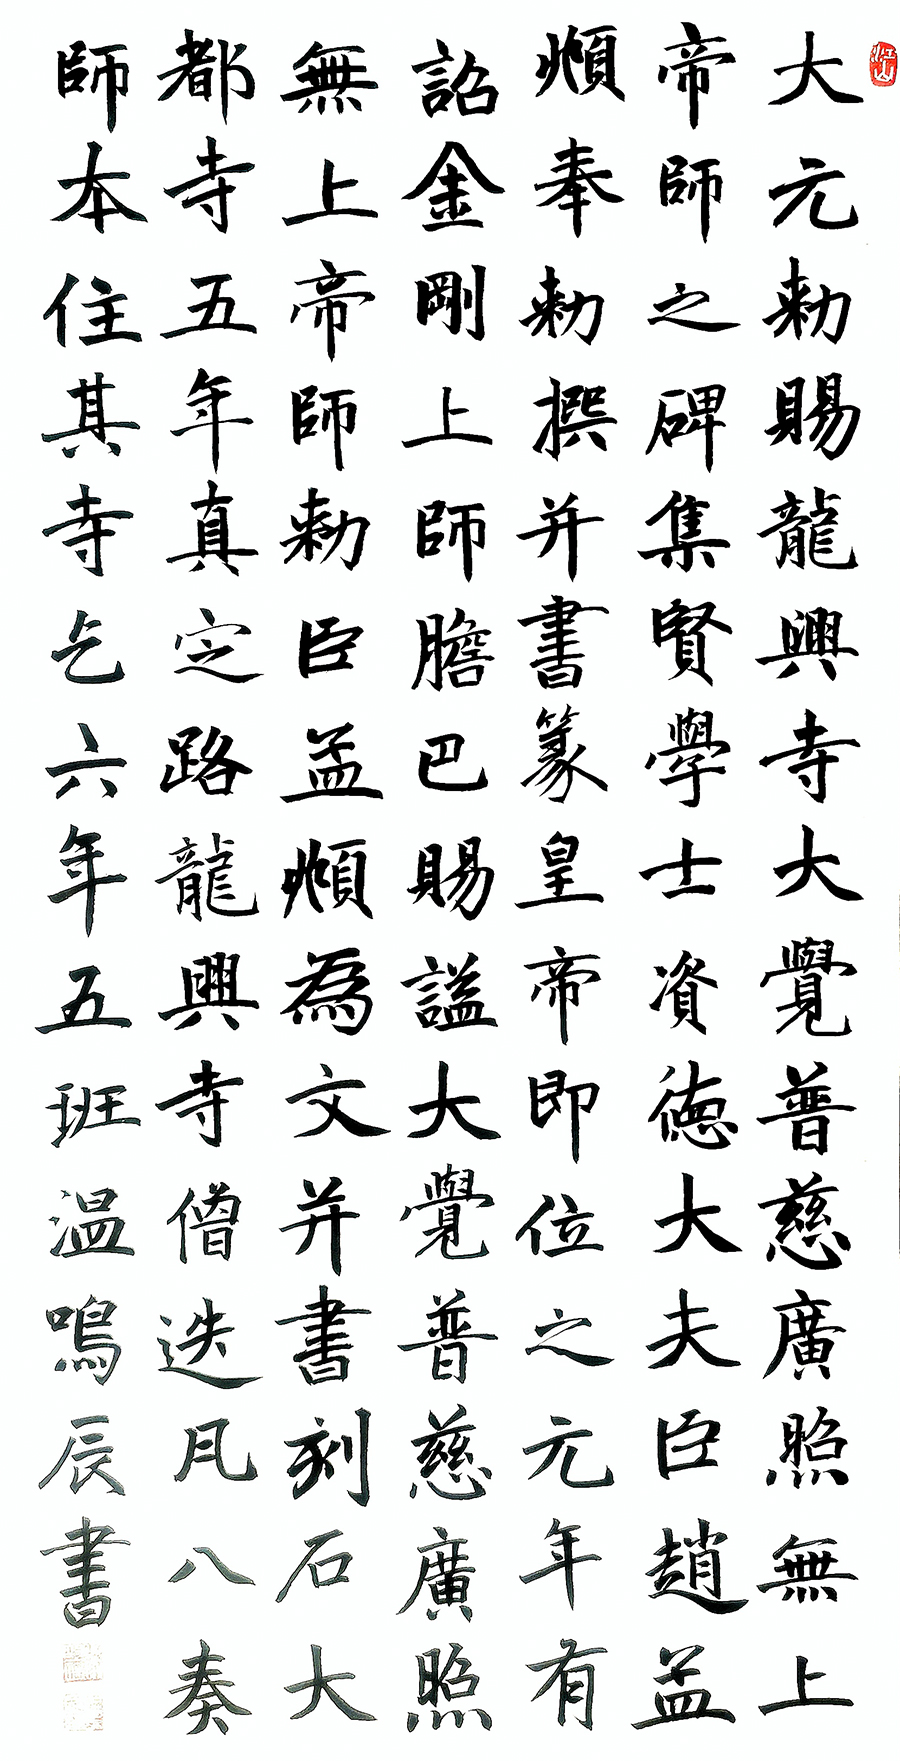 江山
大元勅賜龍興寺大覺普慈廣照無上
帝師之碑集賢學士資德大夫臣趙孟
頫奉勅撰并書篆皇帝即位之元年有
詔金剛上師膽巴賜謚大覺普慈廣照
無上帝師勅臣孟頫為文并書刻石大
都寺五年真定路龍興寺僧迭凡八奏
師本住其寺乞六年五班温鳴辰書